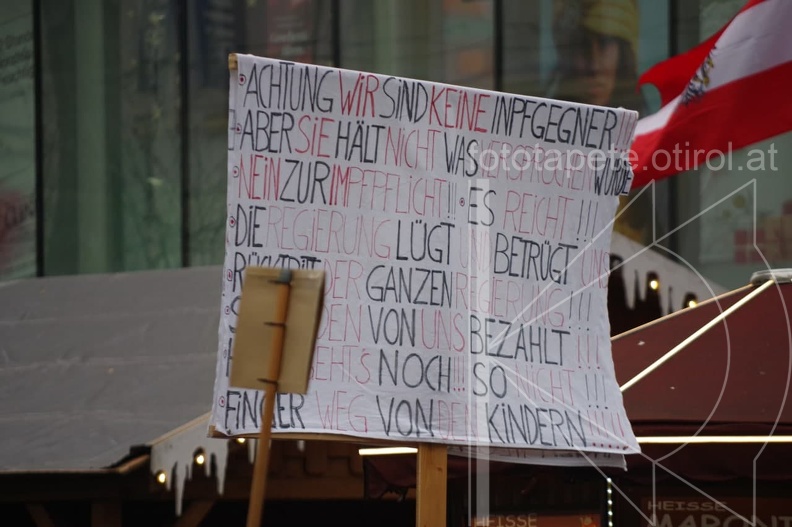 ACHTUNG WIR SIND KEINE INPFGEGNER!!!
ABER SIE HÄLT NICHT WAS VERSPROCHEN WURDE
NEIN ZUR IMPFPFLICHT!!! ES REICHT!!!
DIE REGIERUNG LÜGT UND BETRÜGT UNS
RÜCKTRIT DER GANZEN REGIERUNG!!!
VON UNS BEZAHLT!!!
GEHTS NOCH!!! SO NICHT!!!
FINGER WEG VON DEN KINDERN!!!!
fototapete.otirol.at
HEISSE
HEISSE
MARONI